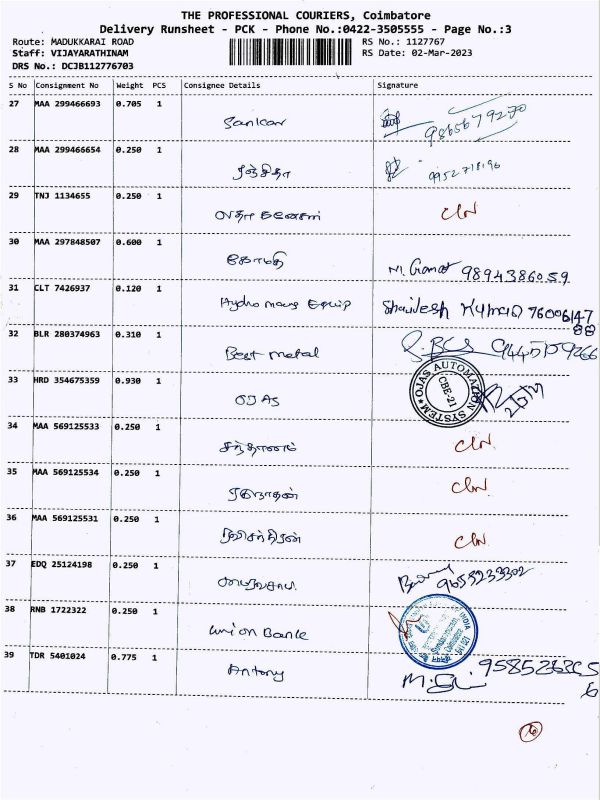 THE PROFESSIONAL COURIERS, Coimbatore
Delivery Runsheet - PCK - Phone No.:0422-3505555 - Page No.:3
Route: MADUKKARAI ROAD RS No.: 1127767
Staff: VIJAYARATHINAM RS Date: 02-Mar-2023
DRS No.: DCJB112776703
S No Consignment No Weight PCS Consignee Details Signature
27 MAA 299466693 0.705 1 Sankar 9865679270
28 MAA 299466654 0.250 1 ரஞ்சிதா
29 TNJ 1134655 0.250 1
30 MAA 297848507 0.600 1 கோமதி 9894386059
31 CLT 7426937 0.120 1 Hydro Equip Shailesh Kumar 76006147
88
32 BLR 280374963 0.310 1 Best Metal
33 HRD 354675359 0.930 1 OJAS OJAS AUTOMATION SYSTEM CBE-21
34 MAA 569125533 0.250 1 சந்தானம்
35 MAA 569125534 0.250 1
36 MAA 569125531 0.250 1
37 EDQ 25124198 0.250 1 9655233302
38 RNB 1722322 0.250 1 Union Bank
39 TDR 5401024 0.775 1 Antony
6